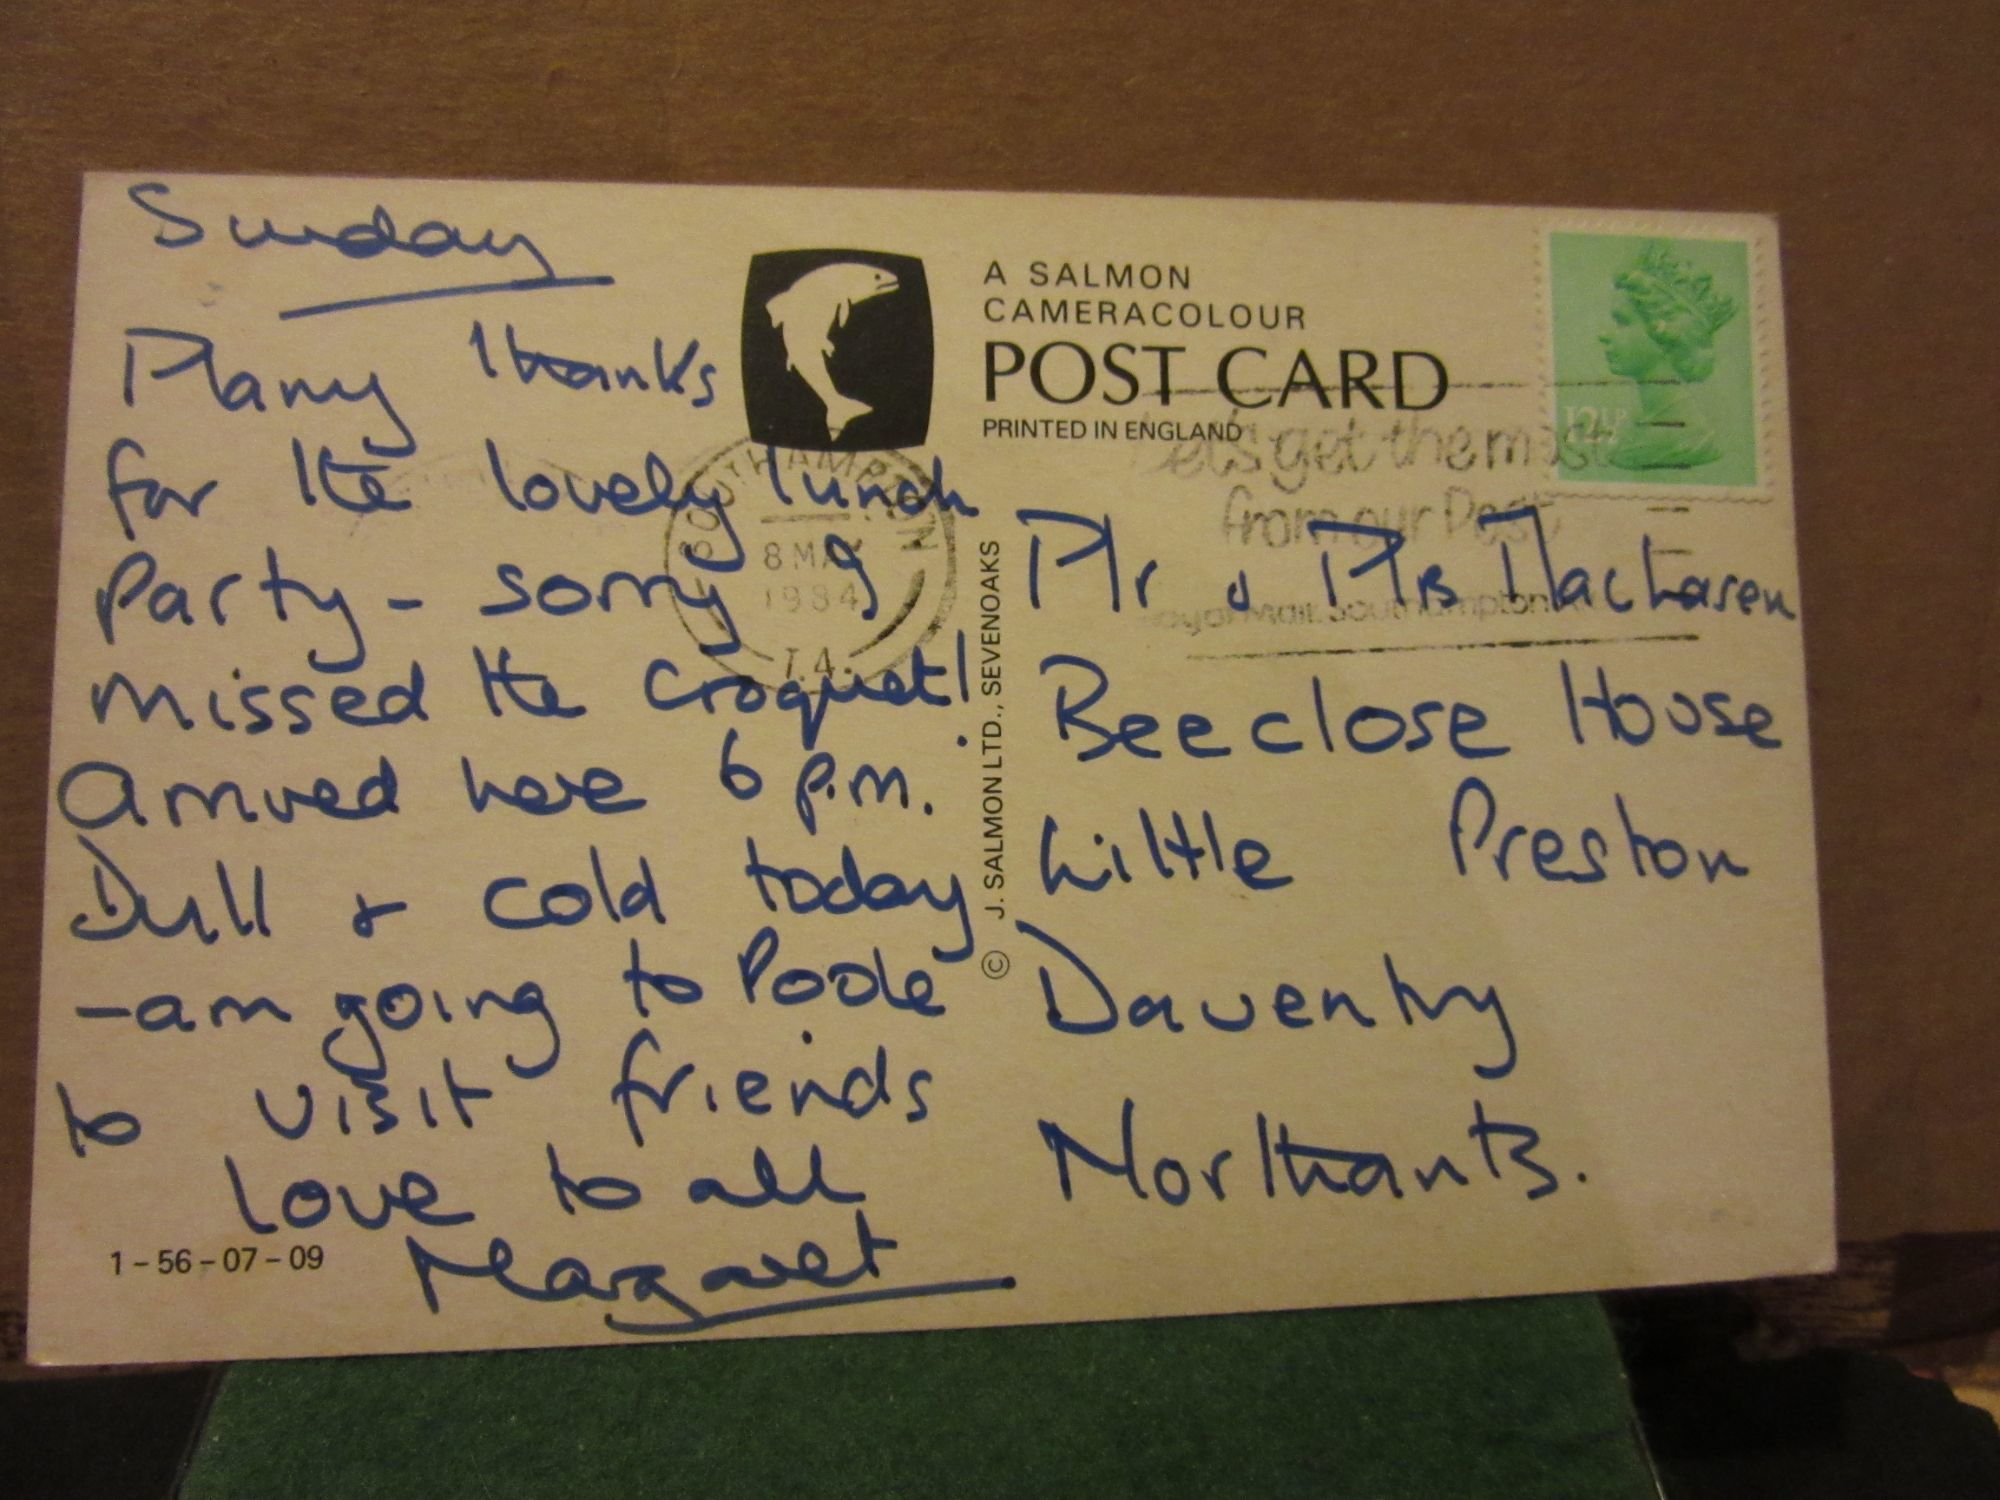 Sunday
Many thanks
for the lovely lunch
party - sorry I
missed the croquet!
Arrived here 6 p.m.
Dull & cold today
- am going to Poole
to visit friends
Love to all
Margaret
1-56-07-09
A SALMON
CAMERACOLOUR
POST CARD
PRINTED IN ENGLAND
© J. SALMON LTD., SEVENOAKS
SOUTHAMPTON
8 MAY
1984
T.A.
12½P
Let's get the most
from our Post
Royal Mail Southampton
Mr & Mrs MacLaren
Beeclose House
Little Preston
Daventry
Northants.